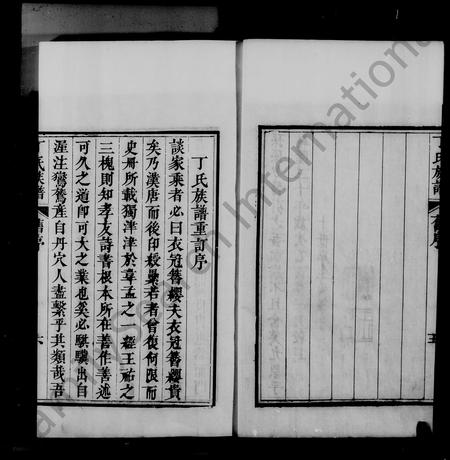 丁氏族譜重訂序
談家乘者必曰衣冠簪纓夫衣冠簪纓貴
矣乃漢唐而後印綬纍若者曾復何限而
史冊所載獨津津於韋孟之一經王祐之
三槐則知孝友詩書根本所在善作善述
可久之道即可大之業也奚必騏驥出自
渥注鸑鷟產自丹穴人盡繫乎其類哉吾
丁氏族譜 舊序 六
丁氏族譜 舊序 五